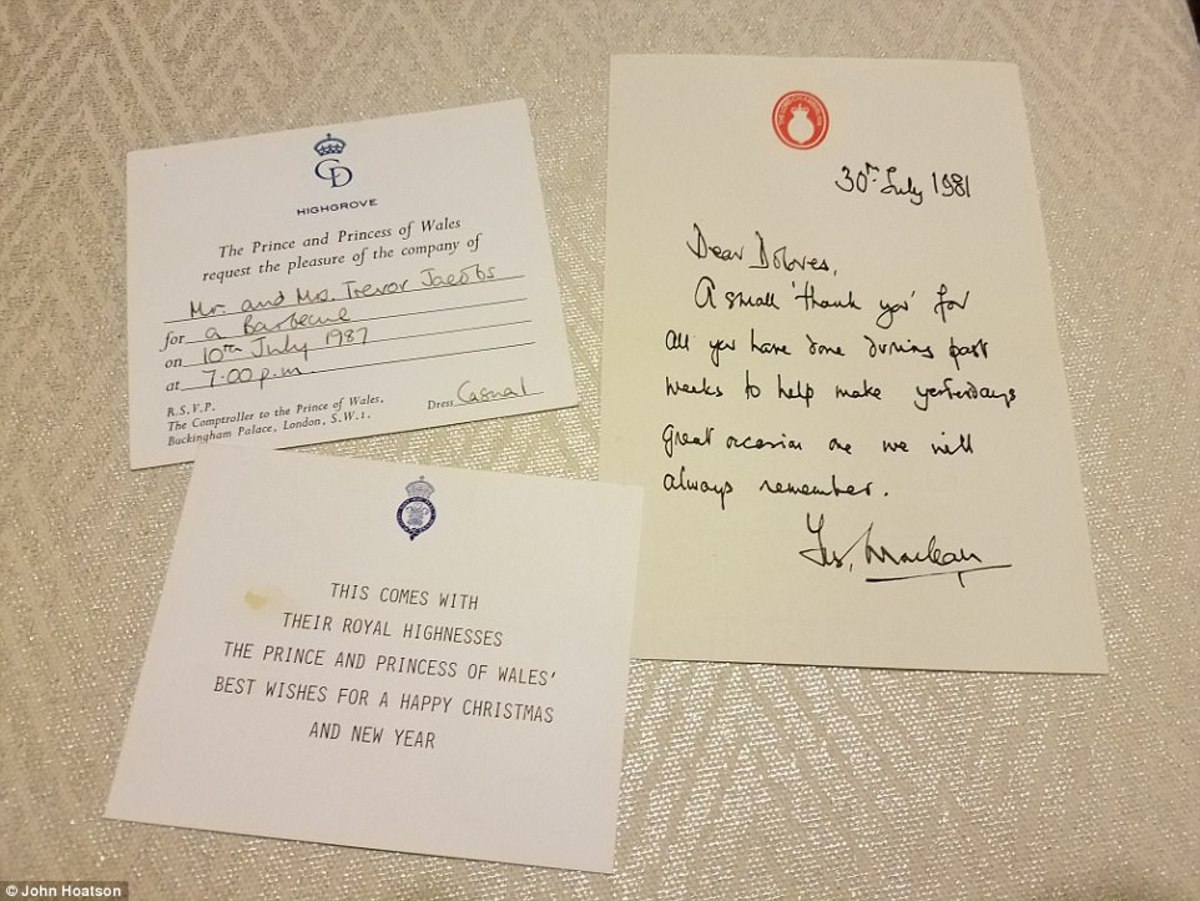 CD
HIGHGROVE
The Prince and Princess of Wales
request the pleasure of the company of
Mr. and Mrs. Trevor Jacobs
for a Barbecue
on 10th July 1987
at 7.00 p.m.
R.S.V.P.
The Comptroller to the Prince of Wales,
Buckingham Palace, London, S.W.1.
Dress Casual
THIS COMES WITH
THEIR ROYAL HIGHNESSES
THE PRINCE AND PRINCESS OF WALES'
BEST WISHES FOR A HAPPY CHRISTMAS
AND NEW YEAR
30th July 1981
Dear Dolores,
A small 'thank you' for
all you have done during past
weeks to help make yesterdays
great occasion one we will
always remember.
Maclean
© John Hoatson